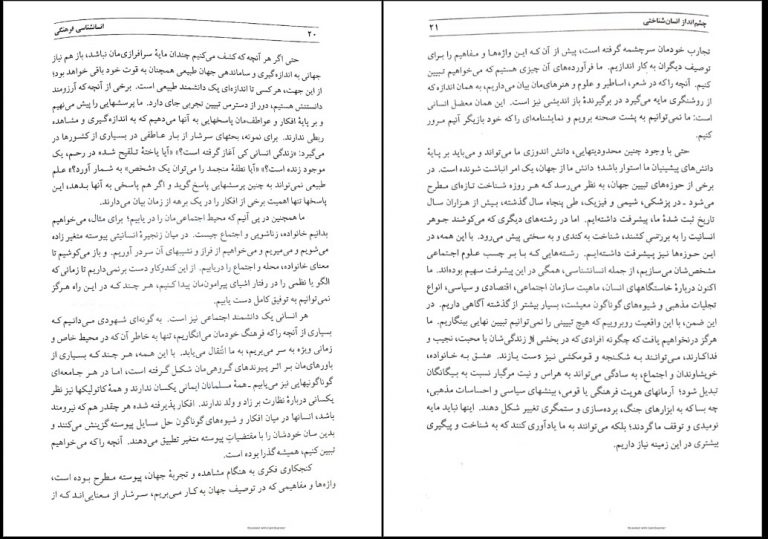 انسانشناسی فرهنگی
۲۰
حتی اگر هر آنچه که کشف می‌کنیم چندان مایهٔ سرافرازی‌مان نباشد، باز هم نیاز
جهانی به اندازه‌گیری و ساماندهی جهان طبیعی همچنان به قوت خود باقی خواهد بود؛
از این جهت، هر کسی تا اندازه‌ای یک دانشمند طبیعی است. برخی از آنچه که آرزومند
دانستنش هستیم، دور از دسترس تبیین تجربی جای دارد. ما پرسشهایی را پیش می‌نهیم
و بر پایهٔ افکار و عواطف‌مان پاسخهایی به آنها می‌دهیم که به اندازه‌گیری و مشاهده
ربطی ندارند. برای نمونه، بحثهای سرشار از بار عاطفی در بسیاری از کشورها در
می‌گیرد: «زندگی انسانی کی آغاز گرفته است؟» «آیا یاختهٔ تلقیح شده در رحم، یک
موجود زنده است؟» «آیا نطفهٔ منجمد را می‌توان یک «شخص» به شمار آورد؟» علم
طبیعی نمی‌تواند به چنین پرسشهایی پاسخ گوید و اگر هم پاسخی به آنها بدهد، این
پاسخها تنها اهمیت برخی از افکار را در یک برهه از زمان بیان می‌دارند.
ما همچنین در پی آنیم که محیط اجتماعی‌مان را در یابیم؛ برای مثال، می‌خواهیم
بدانیم خانواده، زناشویی و اجتماع چیست. در میان زنجیرهٔ انسانیتی پیوسته متغیر زاده
می‌شویم و می‌میریم و می‌خواهیم از فراز و نشیبهای آن سر در آوریم. و باز می‌کوشیم تا
معنای خانواده، محله و اجتماع را دریابیم. از این کندوکاو دست بر نمی‌داریم تا زمانی که
الگو یا نظمی را در رفتار اشیای پیرامون‌مان پیدا کنیم، هر چند که در این راه هرگز
نمی‌توانیم به توفیق کامل دست یابیم.
هر انسانی یک دانشمند اجتماعی نیز است. به گونه‌ای شهودی می‌دانیم که
بسیاری از آنچه را که فرهنگ خودمان می‌انگاریم، تنها به خاطر آن که در محیط خاص و
زمانی ویژه به سر می‌بریم، به ما انتقال می‌یابد. با این همه، هر چند که بسیاری از
باورهای‌مان بر اثر پیوندهای گروهی‌مان شکل گرفته است، اما در هر جامعه‌ای
گوناگونیهایی نیز می‌یابیم - همهٔ مسلمانان ایمانی یکسان ندارند و همهٔ کاتولیکها نیز نظر
یکسانی دربارهٔ نظارت بر زاد و ولد ندارند. افکار پذیرفته شده هر چقدر هم که نیرومند
باشد، انسانها در میان افکار و شیوه‌های گوناگون حل مسایل پیوسته گزینش می‌کنند و
بدین سان خودشان را با مقتضیات پیوسته متغیر تطبیق می‌دهند. آنچه را که می‌خواهیم
تبیین کنیم، همیشه گذرا بوده است.
کنجکاوی فکری به هنگام مشاهده و تجربهٔ جهان، پیوسته مطرح بوده است،
واژه‌ها و مفاهیمی که در توصیف جهان به کار می‌بریم، سرشار از معنایی‌اند که از
چشم‌انداز انسان‌شناختی
۲۱
تجارب خودمان سرچشمه گرفته است، پیش از آن که این واژه‌ها و مفاهیم را برای
توصیف دیگران به کار اندازیم. ما فرآورده‌های آن چیزی هستیم که می‌خواهیم تبیین
کنیم. آنچه را که در شعر، اساطیر و علوم و هنرهای‌مان بیان می‌داریم، به همان اندازه که
از روشنگری مایه می‌گیرد در برگیرندهٔ باز اندیشی نیز است. این همان معضل انسانی
است: ما نمی‌توانیم به پشت صحنه برویم و نمایشنامه‌ای را که خود بازیگر آنیم مرور
کنیم.
حتی با وجود چنین محدودیتهایی، دانش اندوزی ما می‌تواند و می‌باید بر پایهٔ
دانش‌های پیشینیان ما استوار باشد؛ دانش ما از جهان، یک امر انباشت شونده است. در
برخی از حوزه‌های تبیین جهان، به نظر می‌رسد که هر روزه شناخت تازه‌ای مطرح
می‌شود. در پزشکی، شیمی و فیزیک، طی پنجاه سال گذشته، بیش از هزاران سال
تاریخ ثبت شدهٔ ما، پیشرفت داشته‌ایم. اما در رشته‌های دیگری که می‌کوشند جوهر
انسانیت را به بررسی کشند، شناخت به کندی و به سختی پیش می‌رود. با این همه، در
این حوزه‌ها نیز پیشرفت داشته‌ایم. رشته‌هایی که با بر چسب علوم اجتماعی
مشخص‌شان می‌سازیم، از جمله انسانشناسی، همگی در این پیشرفت سهیم بوده‌اند. ما
اکنون دربارهٔ خاستگاههای انسان، ماهیت سازمان اجتماعی، اقتصادی و سیاسی، انواع
تجلیات مذهبی و شیوه‌های گوناگون معیشت، بسیار بیشتر از گذشته آگاهی داریم. در
این ضمن، با این واقعیت روبروییم که هیچ تبیینی را نمی‌توانیم تبیین نهایی بینگاریم. ما
هرگز درنخواهیم یافت که چگونه افرادی که در بخشی از زندگی‌شان با محبت، نجیب و
فداکارند، می‌توانند به شکنجه و قوم‌کشی نیز دست یازند. عشق به خانواده،
خویشاوندان و اجتماع، به سادگی می‌تواند به هراس و نیت مرگبار نسبت به بیگانگان
تبدیل شود؛ آرمانهای هویت فرهنگی یا قومی، بینشهای سیاسی و احساسات مذهبی،
چه بسا که به ابزارهای جنگ، برده‌سازی و ستمگری تغییر شکل دهند. اینها نباید مایه
نومیدی و توقف ما گردند؛ بلکه می‌توانند به ما یادآوری کنند که به شناخت و پیگیری
بیشتری در این زمینه نیاز داریم.
Scanned with CamScanner
Scanned with CamScanner